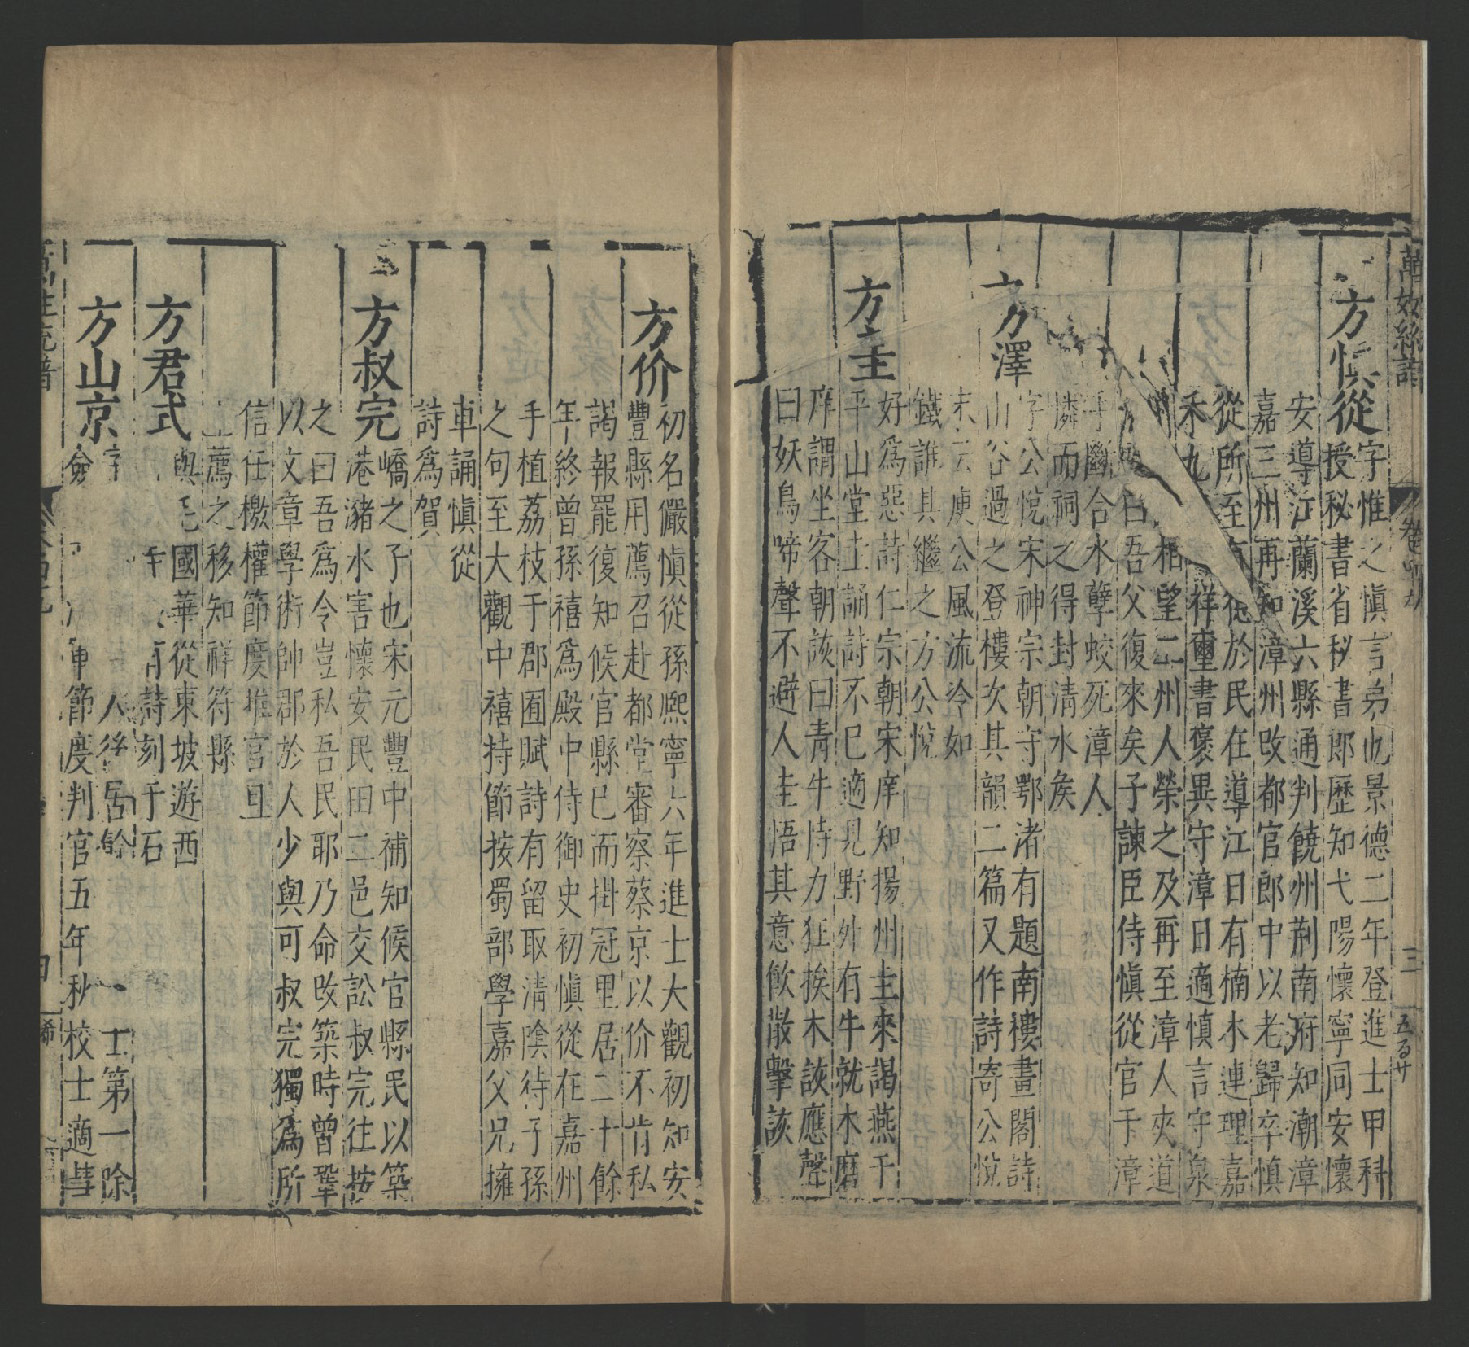 方慎從
字惟之慎言弟也景德二年登進士甲科
授秘書省秘書郎歷知弋陽懷寧同安懷
安導江蘭溪六縣通判饒州荆南府知潮漳
嘉三州再知漳州改都官郎中以老歸卒慎
從所至 於民在導江日有楠木連理嘉
禾九 祥璽書褒異守漳日適慎言守泉
相望二州人榮之及再至漳人夾道
曰吾父復來矣子諫臣侍慎從官于漳
斷合水孽蛟死漳人
憐而祠之得封清水侯
方澤
字公悅宋神宗朝守鄂渚有題南樓畫閣詩
山谷過之登樓次其韻二篇又作詩寄公悅
末云庾公風流冷如
鐵誰其繼之方公悅
方主
好爲惡詩仁宗朝宋庠知揚州主來謁燕于
平山堂主誦詩不已適見野外有牛就木磨
庠謂坐客朝詼曰青牛恃力狂挨木詼應聲
曰妖鳥啼聲不避人主悟其意飲散擊詼
方价
初名儼慎從孫熙寧六年進士大觀初知安
豐縣用薦召赴都堂審察蔡京以价不肯私
謁報罷復知候官縣已而掛冠里居二十餘
年終曾孫禧爲殿中侍御史初慎從在嘉州
手植荔枝于郡圃賦詩有留取清陰待子孫
之句至大觀中禧持節按蜀部學嘉父兄擁
車誦慎從
詩爲賀
方叔完
嶠之子也宋元豐中補知候官縣民以築
港瀦水害懷安民田二邑交訟叔完往按
之曰吾爲令豈私吾民耶乃命改築時曾鞏
以文章學術帥郡於人少與可叔完獨爲所
信任檄權節度推官且
上薦之移知祥符縣
方君式
與毛國華從東坡遊西
詩刻于石
方山京
士第一除
節度判官五年秋校士適彗